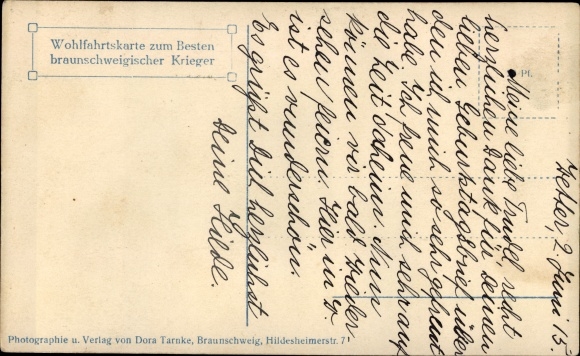 Wohlfahrtskarte zum Besten
braunschweigischer Krieger
Pf.
2 Juni 15.
Meine liebe Trudel, recht
herzlichen Dank für Deinen
lieben Geburtstagsbrief über
den ich mich so sehr gefreut
habe. Ich freue mich sehr auf
die Zeit daheim. Nun
können wir bald Wieder-
sehen feiern. Hier in
ist es wunderschön.
Es grüßt Dich herzlichst
Deine Hilde.
Photographie u. Verlag von Dora Tarnke, Braunschweig, Hildesheimerstr. 71